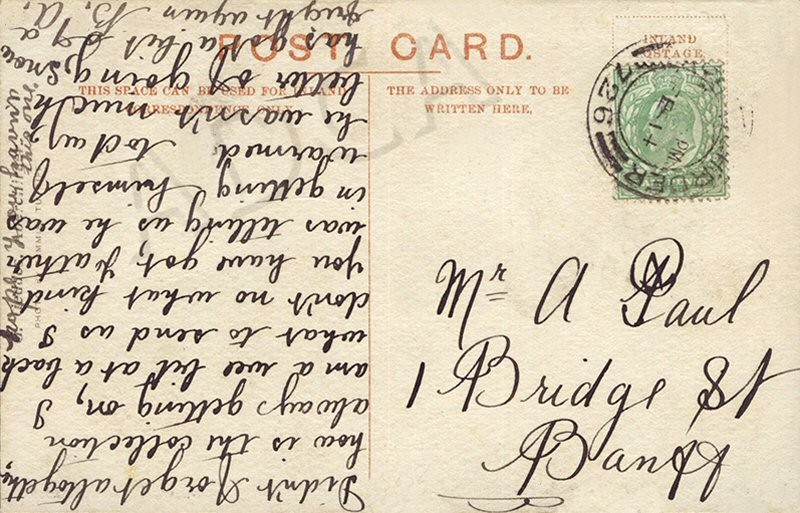 POST CARD.
THIS SPACE CAN BE USED FOR INLAND
CORRESPONDENCE ONLY
THE ADDRESS ONLY TO BE
WRITTEN HERE.
INLAND
POSTAGE
Mr A Paul
1 Bridge St
Banff
Didn't forget altogether,
how is the collection
always getting on, I
am a wee bit at a back
what to send us I
don't no what kind
you have got Father
was telling us he was
in getting himself
warmed to day
he wasn't much
better of going,
has a bit of a
fright again B. A.
snow